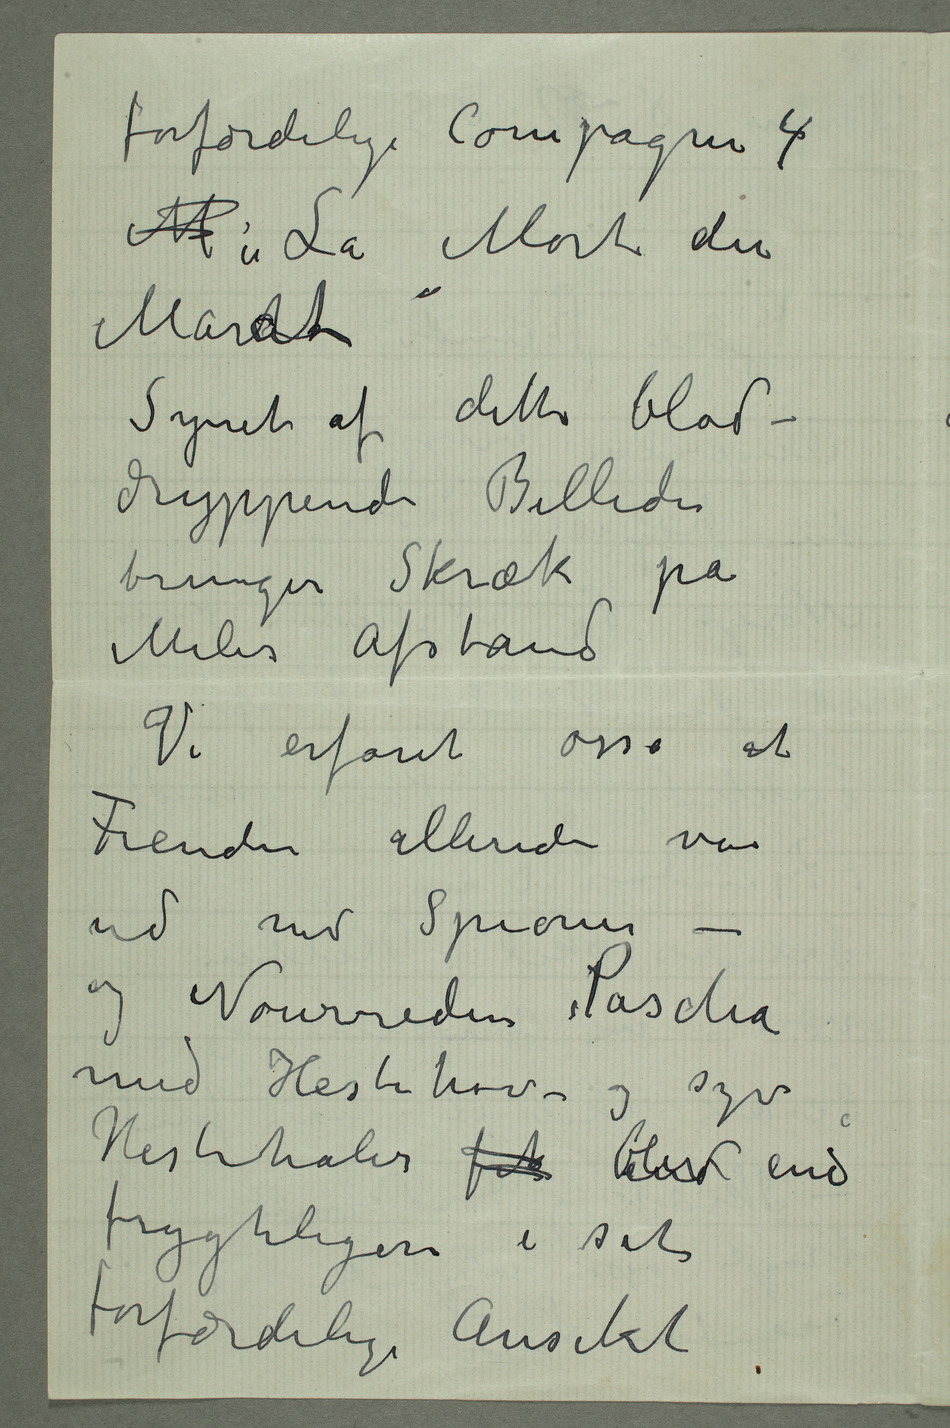 forfærdelige Compagni 4
„La Mort de
Marat“
Synet af dette blod-
dryppende Billede
bringer Skræk på
Miles Afstand
Vi erfaret osså at
Fienden allerede var
ud med Spioner –
og Nourredin Pascha
med Hestehov – og syv
Hestehaler fik blev end
frygteligere i sit
forfærdelige Ansikt